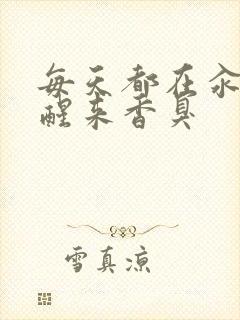 每天都在汆
醒来香臭
雪真凉